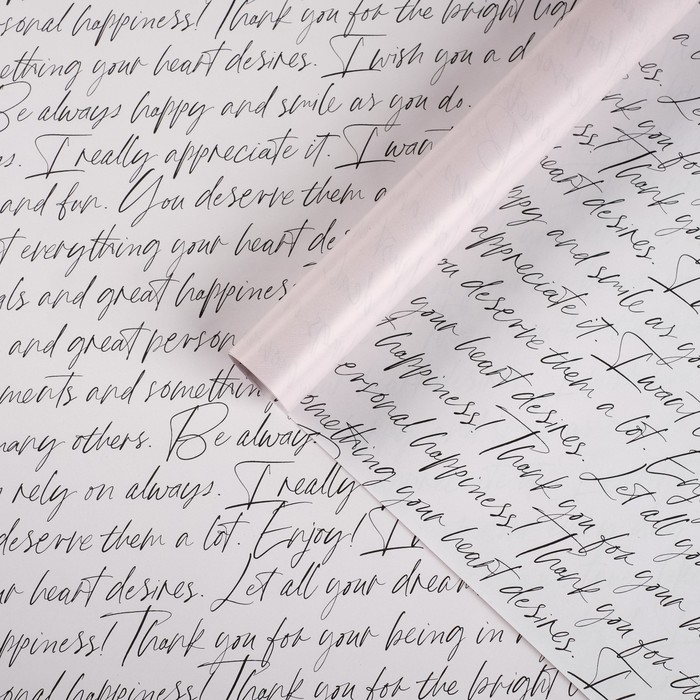 sonal happiness! Thank you for the bright lig
ething your heart desires. I wish you a d
Be always happy and smile as you do.
s. I really appreciate it. I want
and fun. You deserve them a
t everything your heart de
als and great happiness
and great person
ments and something
many others. Be always
rely on always. I really
deserve them a lot. Enjoy! I
ur heart desires. Let all your dream
ppiness! Thank you for your being in
sonal happiness! Thank you for the bright
a
es. Le
nk you for
ss! Thank you
heart desires. I
ppy and smile as yo
appreciate it. I want y
ou deserve them a lot. Enj
your heart desires. Let all yo
happiness! Thank you for your b
ersonal happiness! Thank you for th
omething your heart desires. I